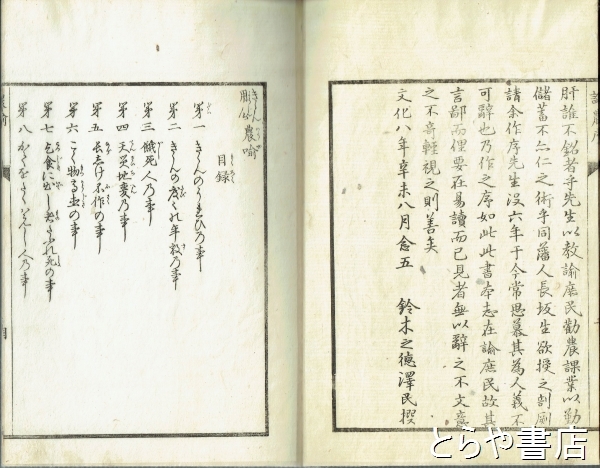 肝誰不銘者寺先生以教諭庶民勸農課業以勤
儲蓄不亦仁之術乎同藩人長坂生欲授之剞劂
請余作序先生沒六年于今常思慕其為人義不
可辭也乃作之序如此此書本志在諭庶民故其
言鄙而俚要在易讀而已見者無以辭之不文意
之不奇輕視之則善矣
文化八年辛未八月念五　鈴木之德澤民撰
農喻
目録
第一　きゝんのうれひの事
第二　きゝんの
第三　餓死人の事
第四　天災地變の事
第五　不作の事
第六
第七　乞食に出し者
第八　人の事
とらや書店